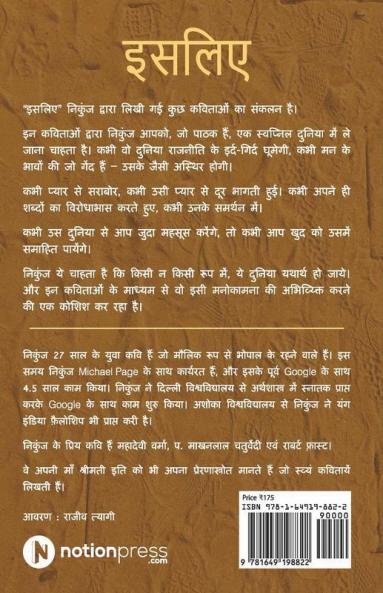 इसलिए
"इसलिए" निकुंज द्वारा लिखी गई कुछ कविताओं का संकलन है।
इन कविताओं द्वारा निकुंज आपको, जो पाठक हैं, एक स्वप्निल दुनिया में ले
जाना चाहता है। कभी वो दुनिया राजनीति के इर्द-गिर्द घूमेगी, कभी मन के
भावों की जो गेंद हैं – उसके जैसी अस्थिर होगी।
कभी प्यार से सराबोर, कभी उसी प्यार से दूर भागती हुई। कभी अपने ही
शब्दों का विरोधाभास करते हुए, कभी उनके समर्थन में।
कभी उस दुनिया से आप जुदा महसूस करेंगे, तो कभी आप खुद को उसमें
समाहित पायेंगे।
निकुंज ये चाहता है कि किसी न किसी रूप में, ये दुनिया यथार्थ हो जाये।
और इन कविताओं के माध्यम से वो इसी मनोकामना की अभिव्यक्ति करने
की एक कोशिश कर रहा है।
निकुंज 27 साल के युवा कवि हैं जो मौलिक रूप से भोपाल के रहने वाले हैं। इस
समय निकुंज Michael Page के साथ कार्यरत हैं, और इसके पूर्व Google के साथ
4.5 साल काम किया। निकुंज ने दिल्ली विश्वविद्यालय से अर्थशास्त्र में स्नातक प्राप्त
करके Google के साथ काम शुरु किया। अशोका विश्वविद्यालय से निकुंज ने यंग
इंडिया फ़ैलोशिप भी प्राप्त करी है।
निकुंज के प्रिय कवि हैं महादेवी वर्मा, प. माखनलाल चतुर्वेदी एवं राबर्ट फ्रास्ट।
वे अपनी माँ श्रीमती इति को भी अपना प्रेरणास्रोत मानते हैं जो स्वयं कवितायें
लिखती हैं।
आवरण : राजीव त्यागी
notionpress
.com
Price ₹175
ISBN 978-1-64919-882-2
90000
9 781649 198822